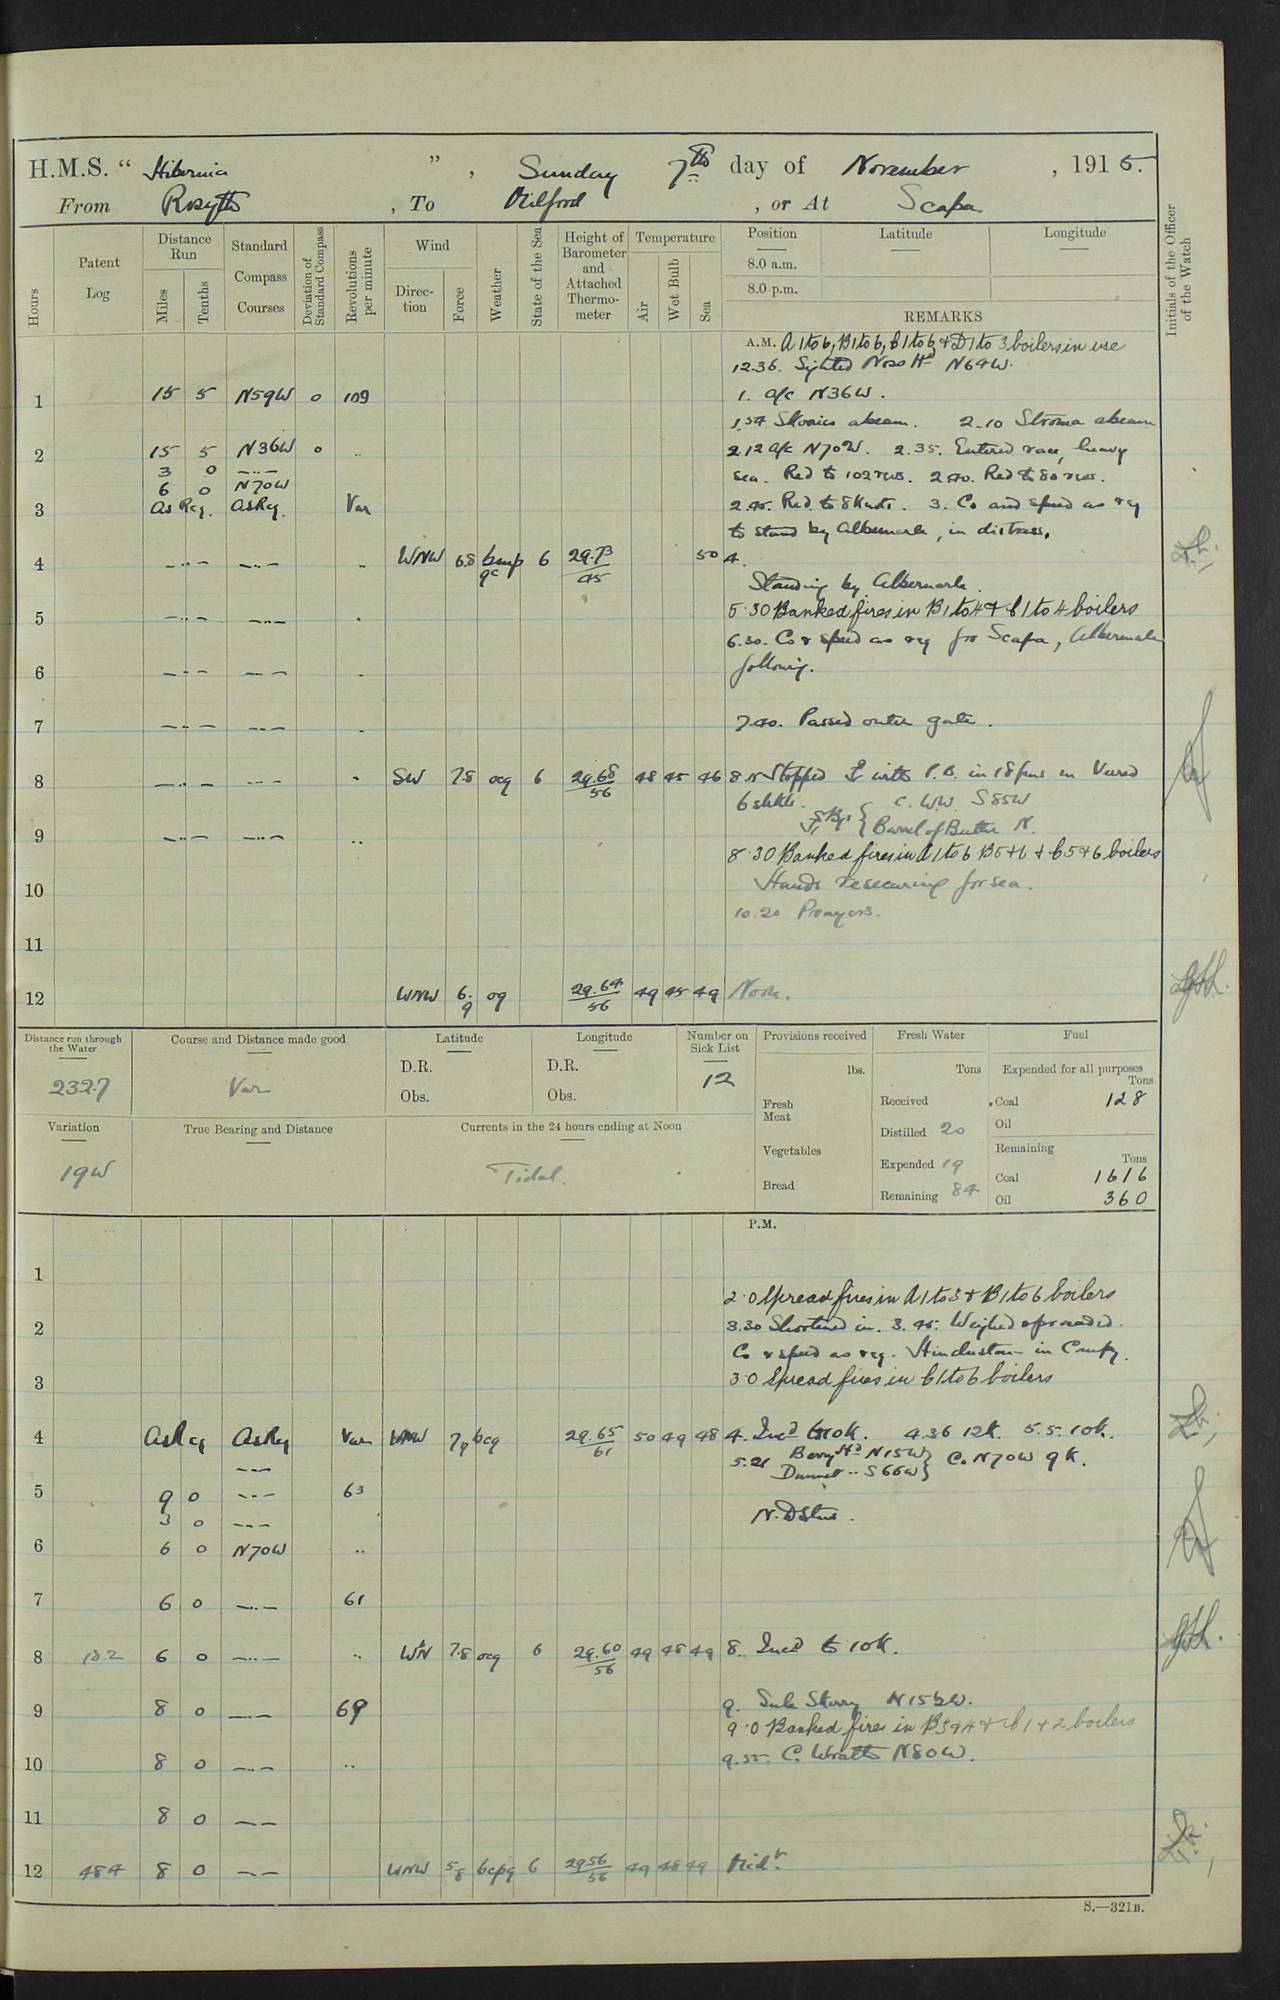 H.M.S. “ Hibernia ” , Sunday 7th day of November , 1915.
From Rosyth , To Milford , or At Scapa
Hours
Patent Log
Distance Run
Miles
Tenths
Standard Compass Courses
Deviation of Standard Compass
Revolutions per minute
Wind
Direction
Force
Weather
State of the Sea
Height of Barometer and Attached Thermometer
Temperature
Air
Wet Bulb
Sea
Position
Latitude
Longitude
8.0 a.m.
8.0 p.m.
REMARKS
Initials of the Officer of the Watch
A.M. A 1 to 6, B 1 to 6, C 1 to 6 & D 1 to 3 boilers in use
12.36. Sighted Noss Hd N64W.
1 15 5 N59W 0 109 1. a/c N36W.
1.54 Skerries abeam. 2.10 Stroma abeam
2 15 5 N36W 0 .. 2.12 a/c N70W. 2.35. Entered race, heavy
3 0 —..—
sea. Red to 102 revs. 2.40. Red to 80 revs.
6 0 N70W
3 As Req. As Req. Var 2.45. Red. to 8 Knots. 3. Co and speed as req
to stand by Albemarle, in distress.
4 —..— —..— .. WNW 6.8 bmp qc 6 29.73 45 50 4.
Standing by Albemarle.
5 —..— —..— . 5.30 Banked fires in B 1 to 4 & C 1 to 4 boilers
6.30. Co & speed as req for Scapa, Albemarle
6 —..— —..— . following.
7 —..— —..— . 7.40. Passed outer gate.
8 —..— —..— .. SW 7.8 ocq 6 29.68 56 48 45 46 8. Stopped & with P.B. in 18 fms in Veered
6 shkls. C. W.W. S85W
Barrel of Butter N.
9 —..— —..— ..
8.30 Banked fires in A 1 to 6 B 5 + 6 & C 5 + 6 boilers
10 Hands resecuring for sea.
10.20 Prayers.
11
12 WNW 6.9 oq 29.64 56 49 45 49 Noon.
Distance run through the Water
232.7
Course and Distance made good
Var
Latitude
D.R.
Obs.
Longitude
D.R.
Obs.
Number on Sick List
12
Provisions received
lbs.
Fresh Meat
Vegetables
Bread
Fresh Water
Tons
Received
Distilled 20
Expended 19
Remaining 84
Fuel
Expended for all purposes
Tons
Coal 128
Oil
Remaining
Tons
Coal 1616
Oil 360
Variation
19W
True Bearing and Distance
Currents in the 24 hours ending at Noon
Tidal.
P.M.
1
2.0 Spread fires in A 1 to 3 & B 1 to 6 boilers
2 3.30 Shortened in. 3.45. Weighed & proceeded.
Co & speed as req. Hindustan in Compy.
3 3.0 Spread fires in C 1 to 6 boilers
4 As Req As Req Var WNW 7.9 bcq 29.65 61 50 49 48 4. Incd to 10K. 4.36 12K. 5.5. 10K.
—..—
5.21 Berry Hd N15W } C. N70W 9K.
Dunnet .. S66W }
5 9 0 —..— 63
3 0 —..— N. D Stns.
6 6 0 N70W ..
7 6 0 —..— 61
8 18.2 6 0 —..— .. WN 7.8 ocq 6 29.60 56 49 48 49 8. Incd to 10K.
9 8 0 —..— 69 9. Sule Skerry N15½W.
9.0 Banked fires in B 3 & 4 & C 1 + 2 boilers
10 8 0 —..— .. 9.55. C. Wrath N80W.
11 8 0 —..—
12 48.4 8 0 —..— WNW 5.8 bcpq 6 29.56 56 49 48 49 Midt
S.—321B.